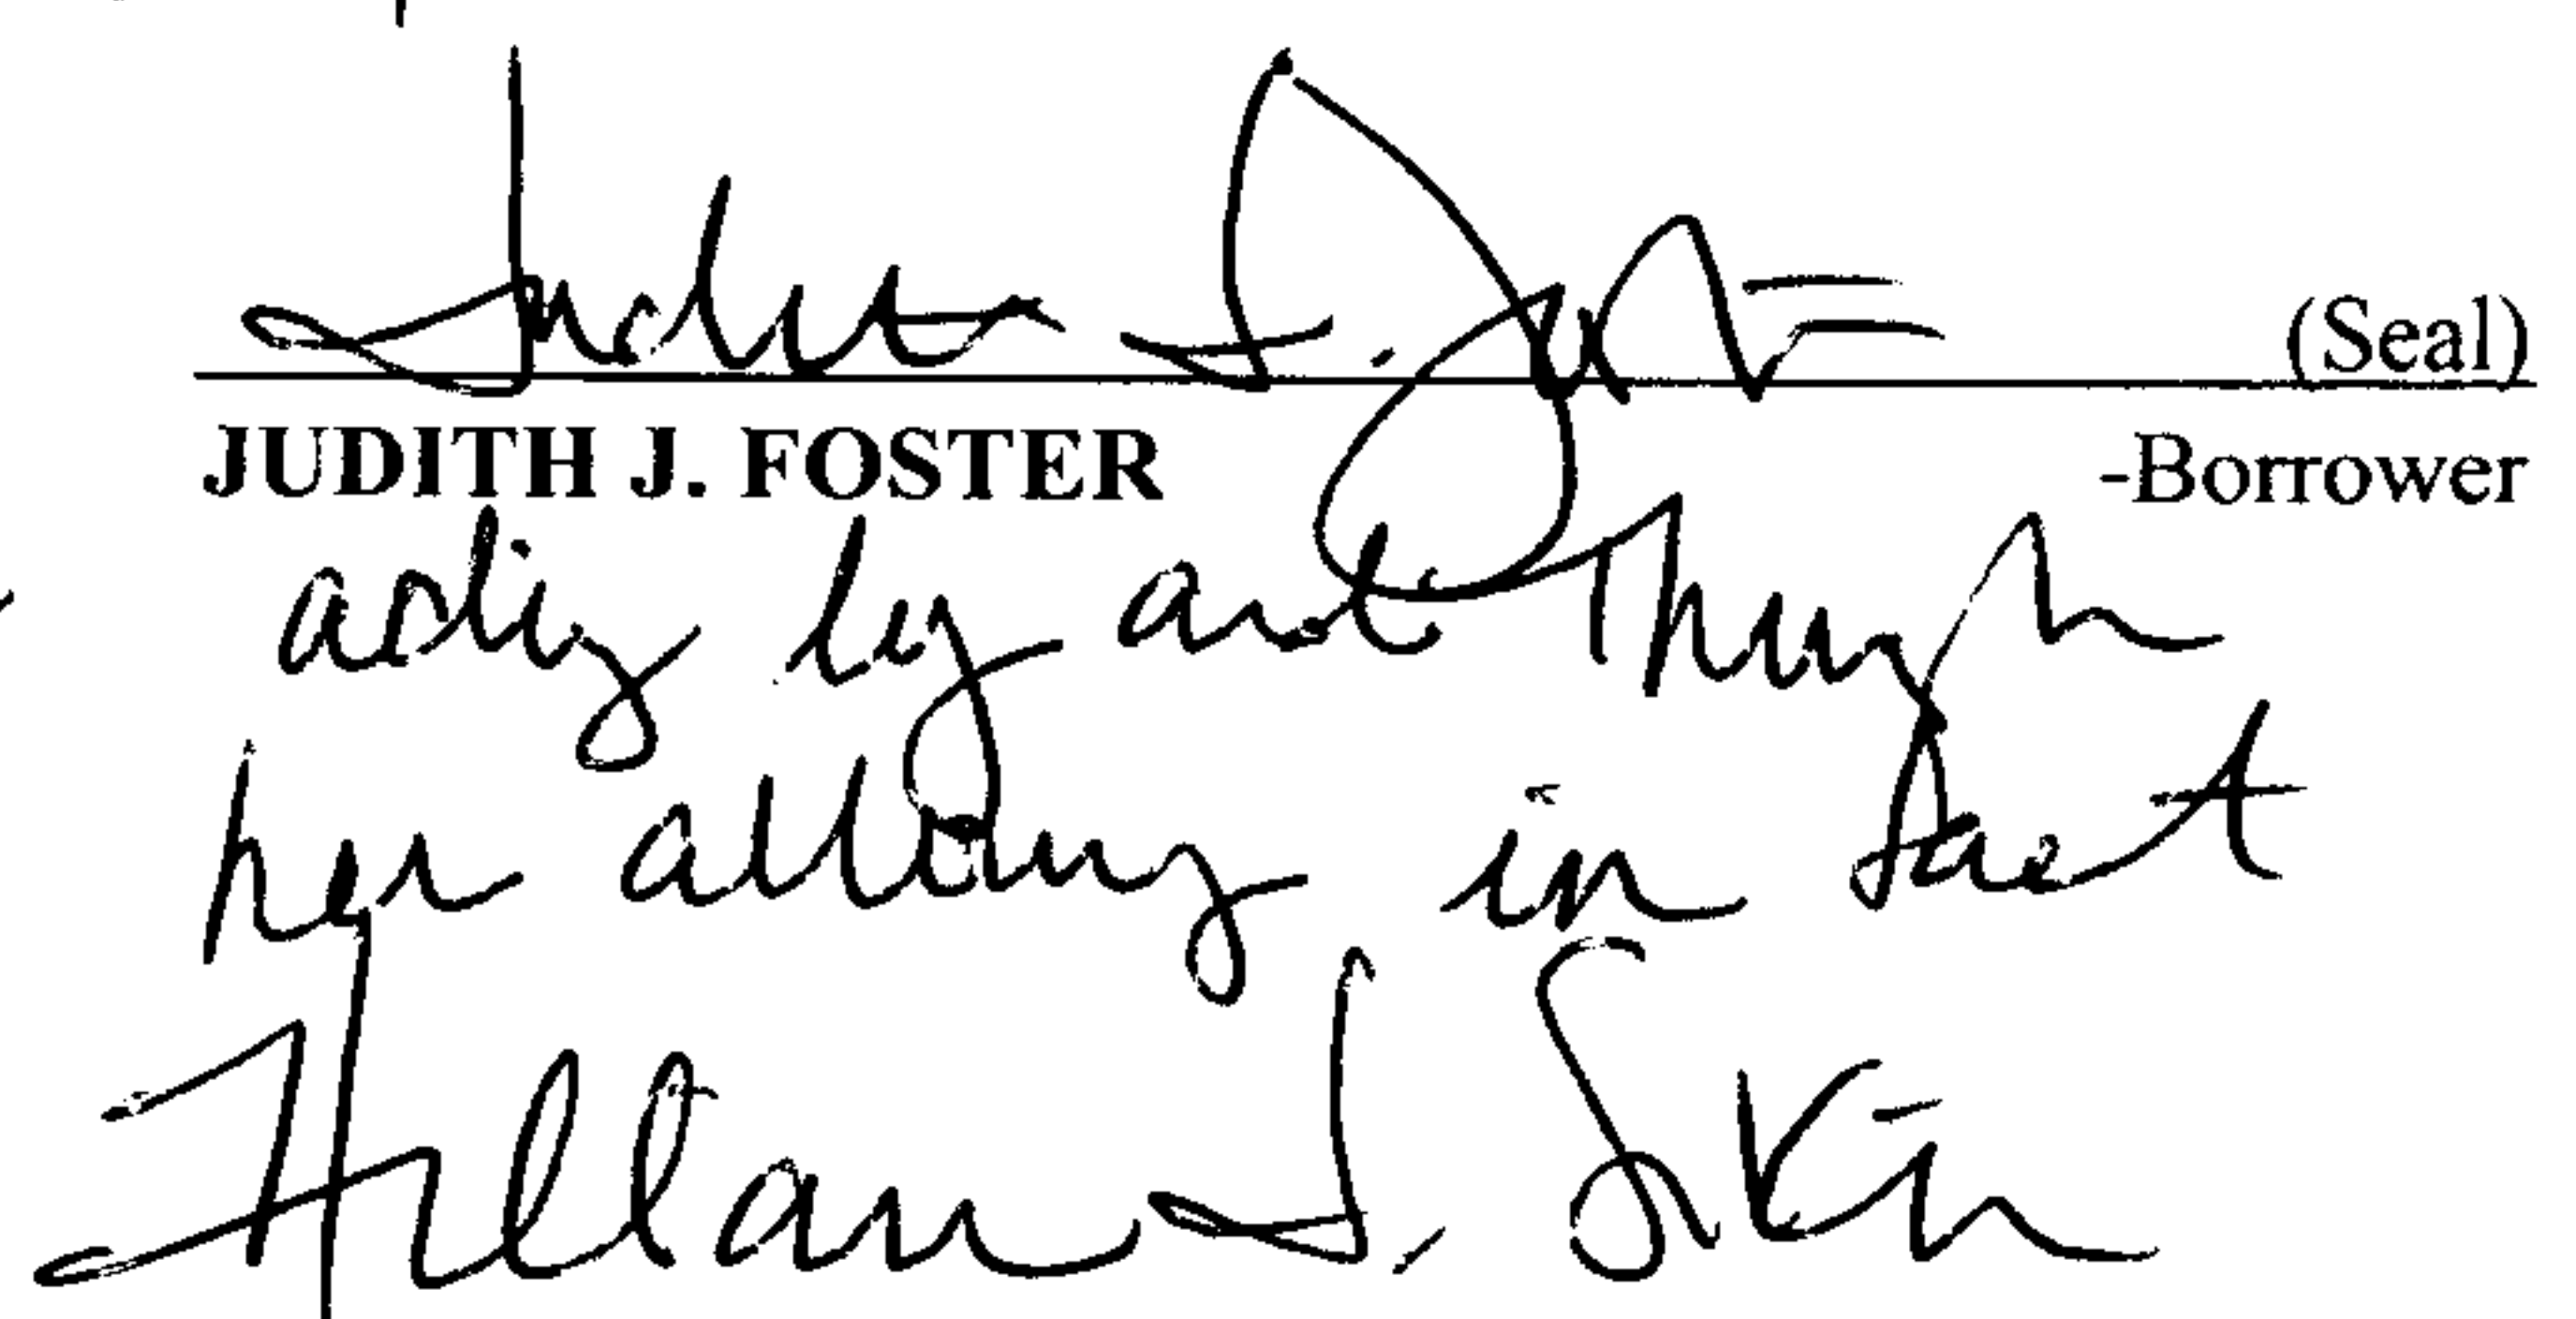 Judith J. Foster (Seal)
JUDITH J. FOSTER -Borrower
acting by and through
her attorney in fact
J.